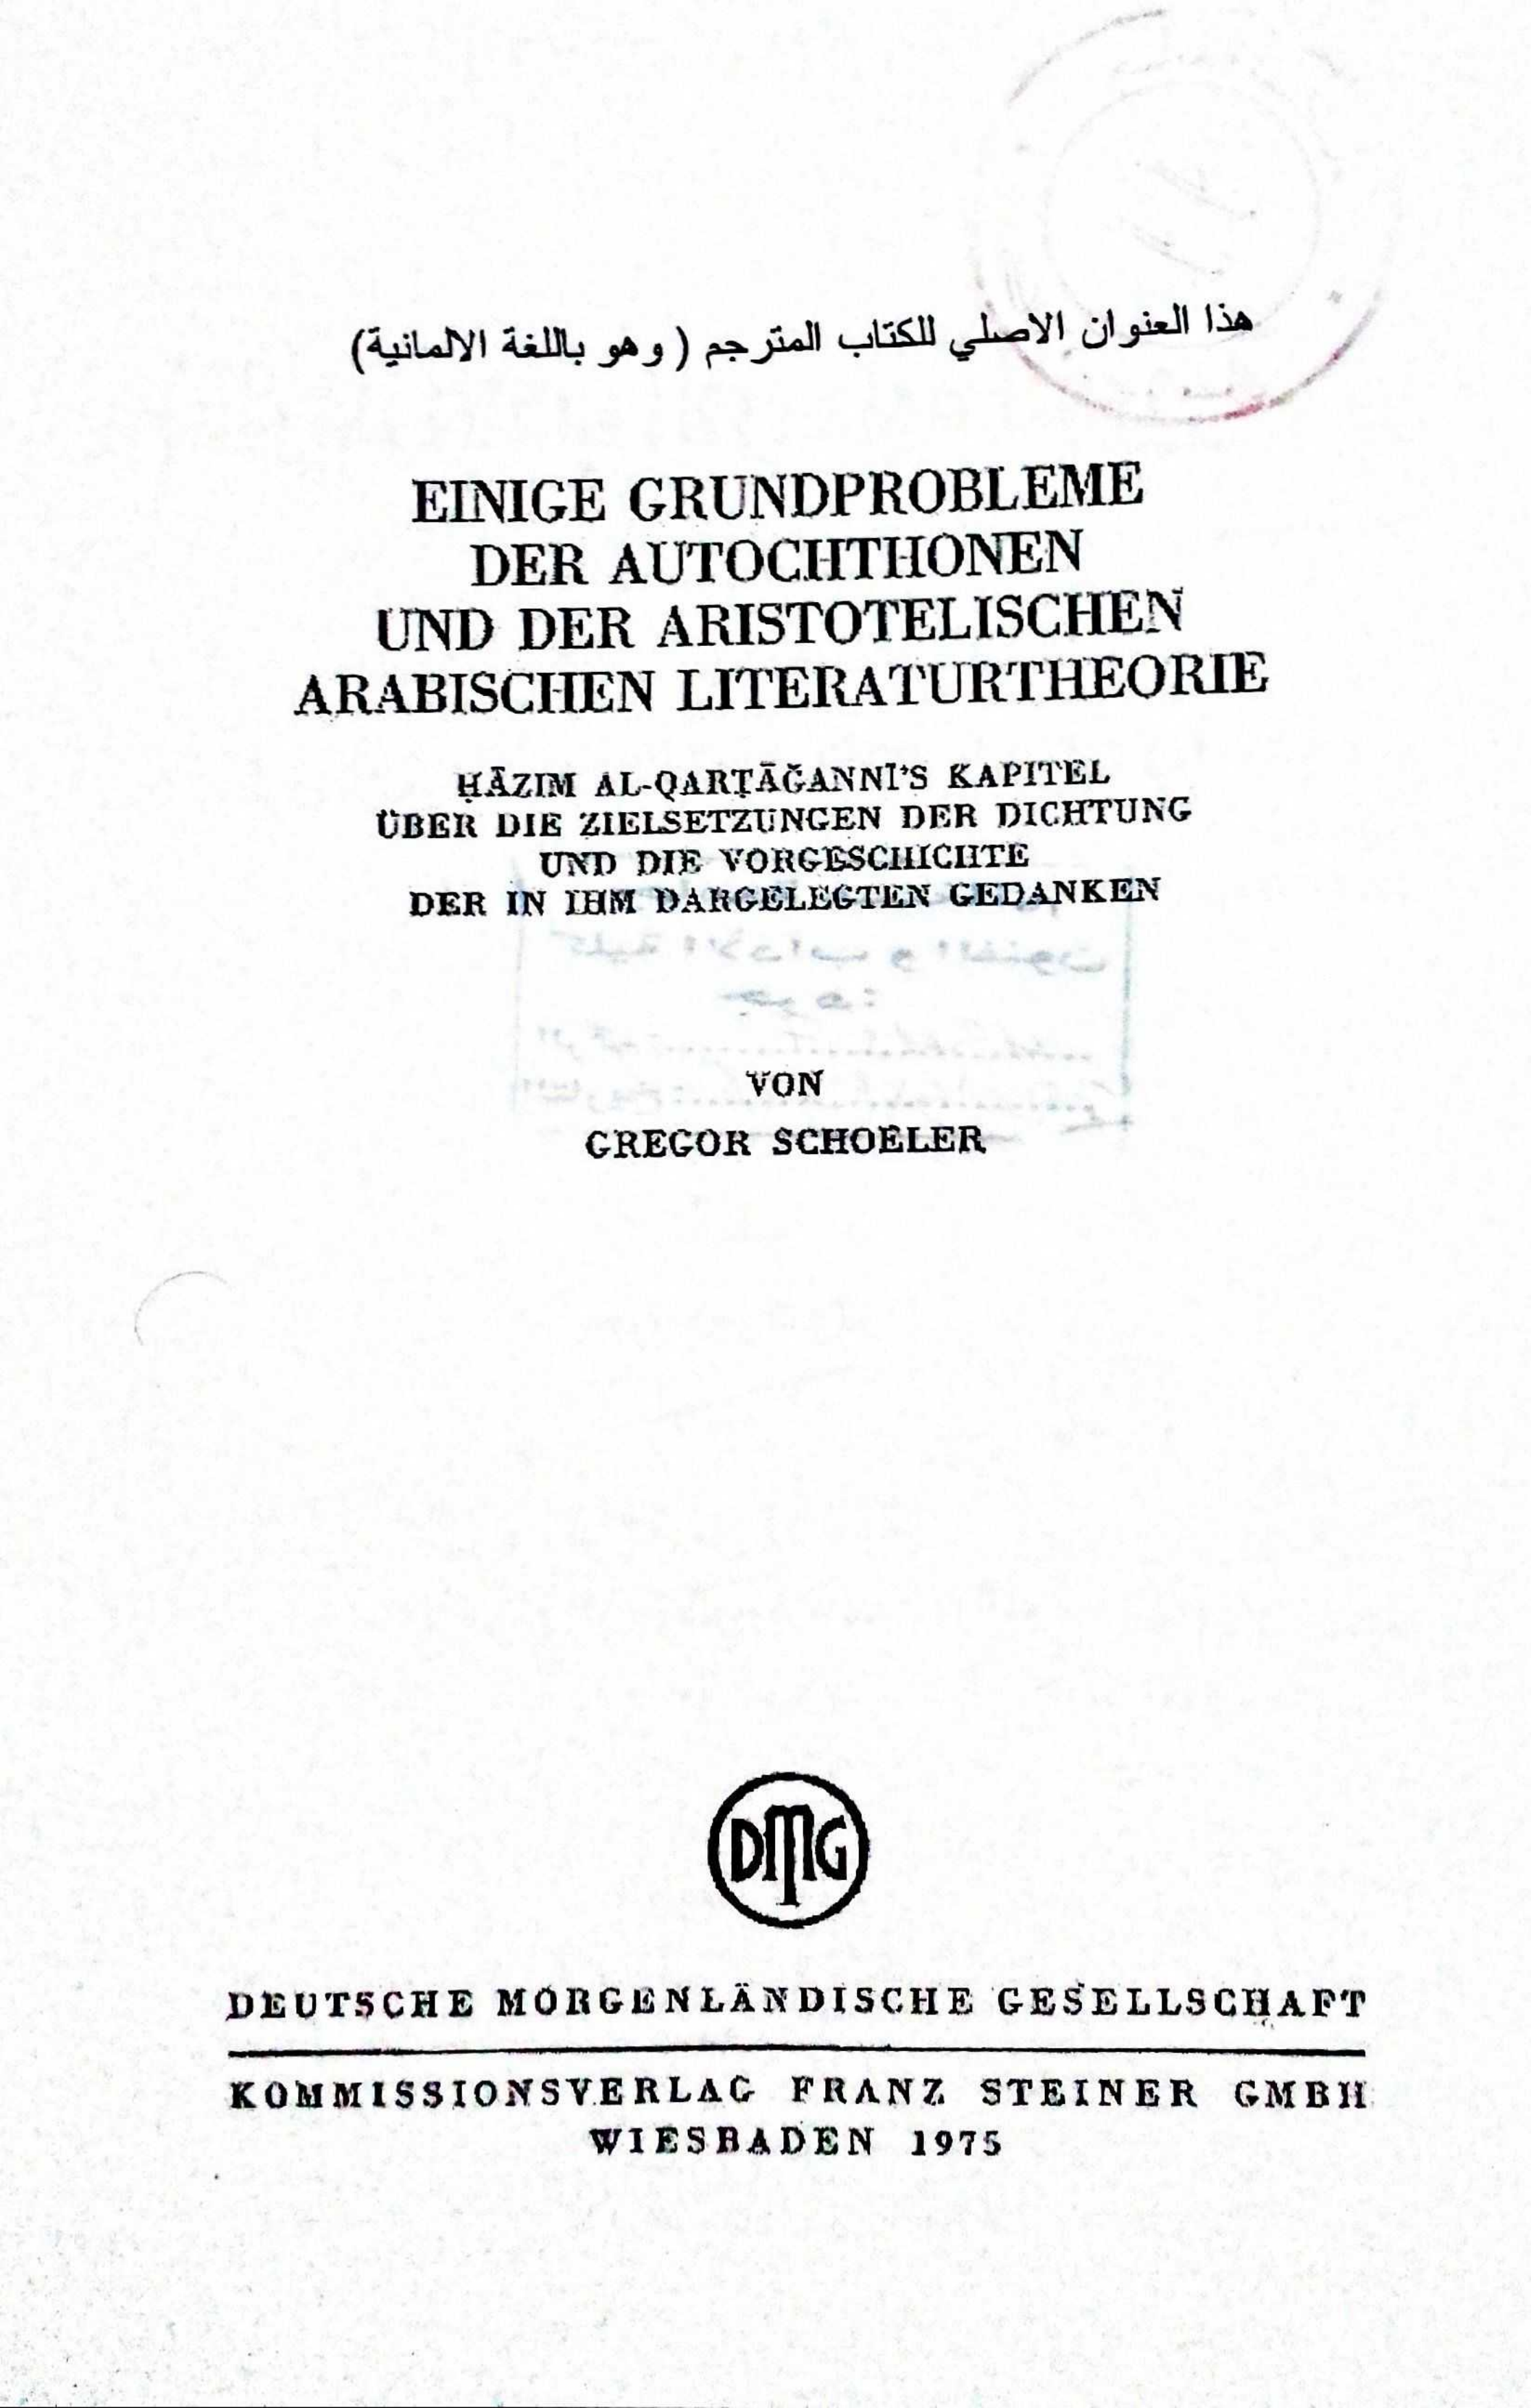 هذا العنوان الاصلي للكتاب المترجم (وهو باللغة الالمانية)
EINIGE GRUNDPROBLEME
DER AUTOCHTHONEN
UND DER ARISTOTELISCHEN
ARABISCHEN LITERATURTHEORIE
ḤĀZIM AL-QARṬĀǦANNĪ'S KAPITEL
ÜBER DIE ZIELSETZUNGEN DER DICHTUNG
UND DIE VORGESCHICHTE
DER IN IHM DARGELEGTEN GEDANKEN
VON
GREGOR SCHOELER
DMG
DEUTSCHE MORGENLÄNDISCHE GESELLSCHAFT
KOMMISSIONSVERLAG FRANZ STEINER GMBH
WIESBADEN 1975